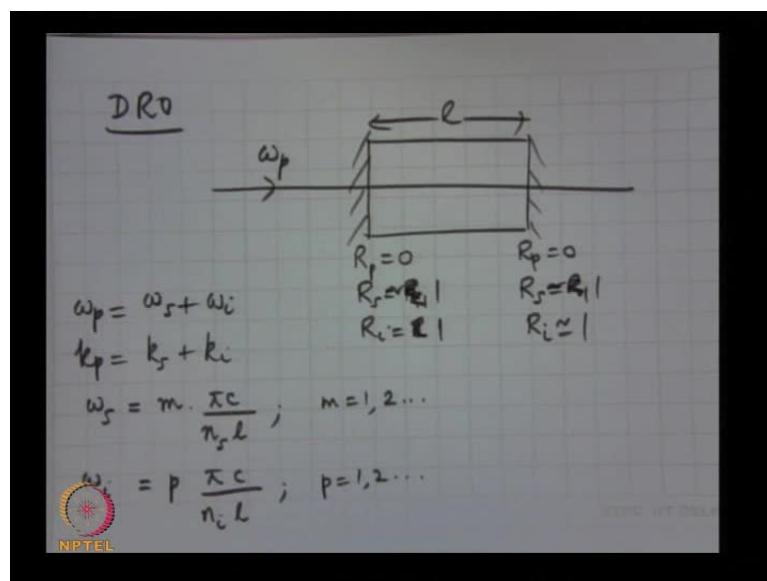 DRO
l
ωp
Rp = 0 Rp = 0
Rs ≃ 1 Rs ≃ 1
Ri = 1 Ri ≃ 1
ωp = ωs + ωi
kp = ks + ki
ωs = m · πc / ns l ; m = 1, 2 ...
ωi = p πc / ni l ; p = 1, 2 ...
NPTEL